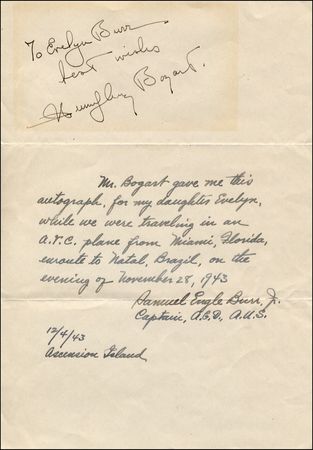 To Evelyn Burr
best wishes
Humphrey Bogart.
Mr. Bogart gave me this
autograph, for my daughter Evelyn,
while we were traveling in an
A.T.C. plane from Miami, Florida,
enroute to Natal, Brazil, on the
evening of November 28, 1943
Samuel Engle Burr, Jr.
Captain, A.G.D., A.U.S.
12/4/43
Ascension Island